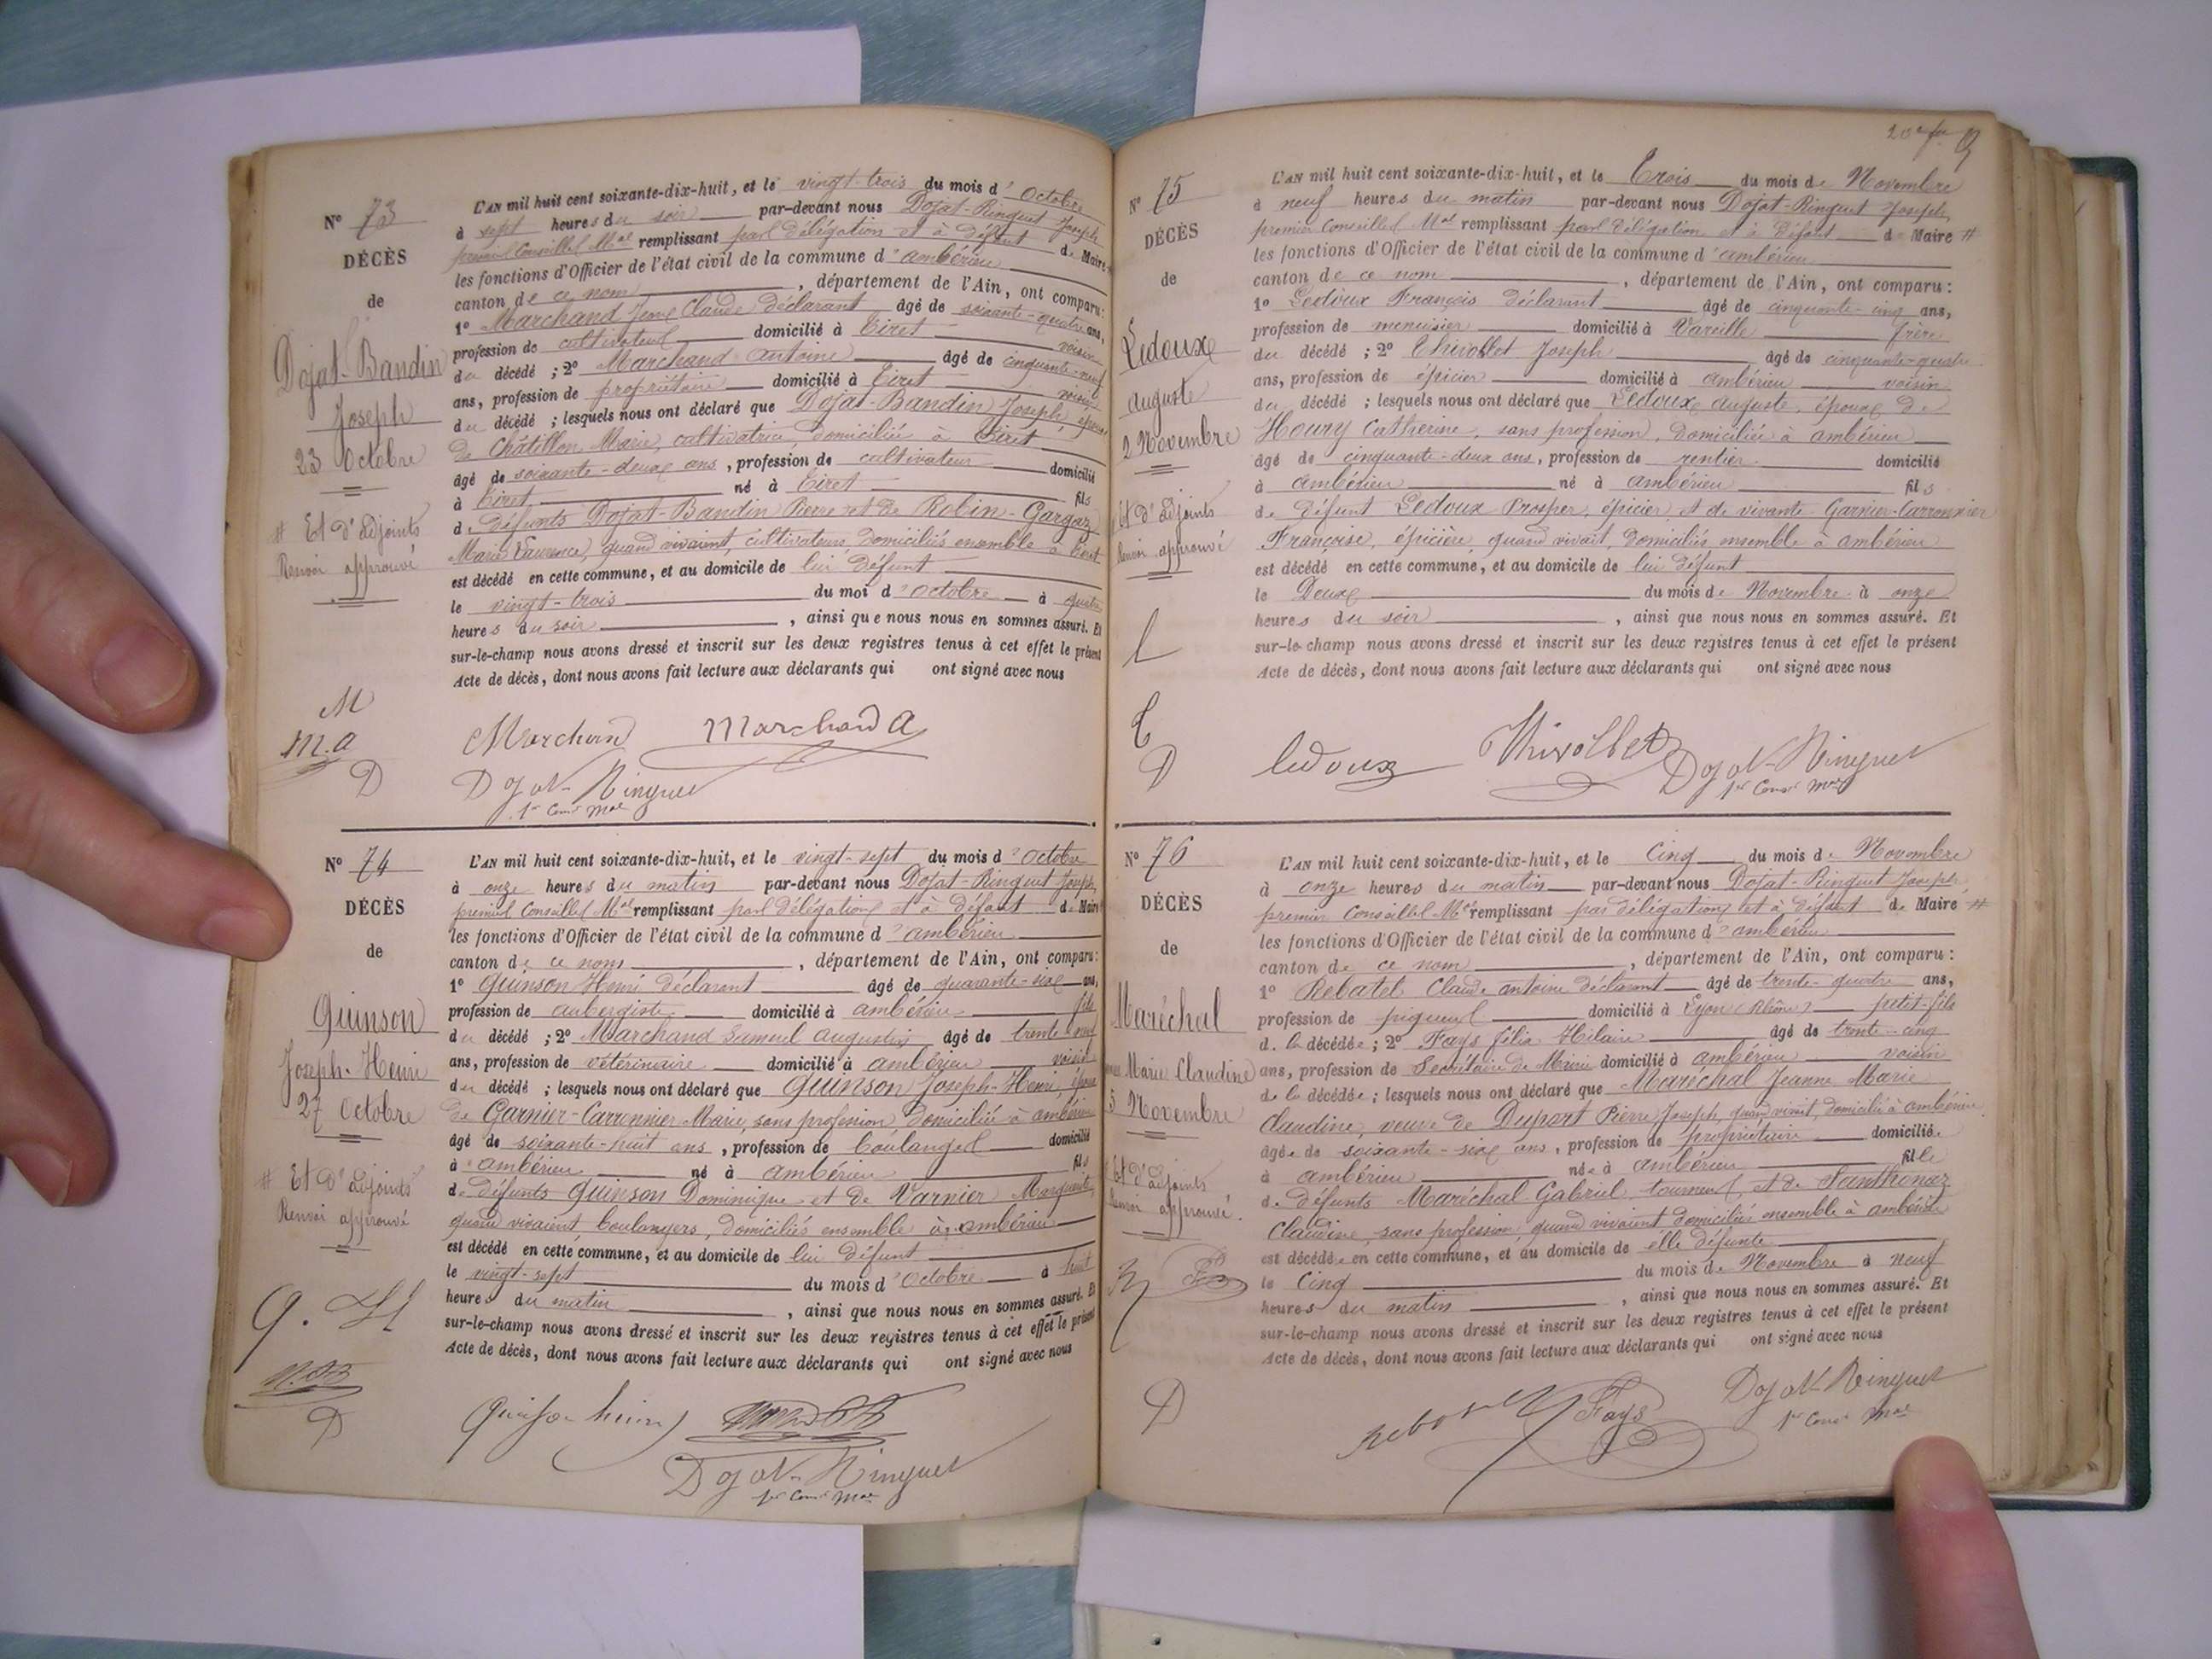 Nº 73
DÉCÈS
de
Dojat-Bandin
Joseph
23 Octobre
# Et d'adjoints
Renvoi approuvé
L'AN mil huit cent soixante-dix-huit, et le vingt-trois du mois d'Octobre
à sept heures du soir par-devant nous Dojat-Ringuet Joseph
premier Conseiller Mal remplissant par délégation et à défaut de Maire #
les fonctions d'Officier de l'état civil de la commune d'ambérieu
canton de ce nom, département de l'Ain, ont comparu:
1º Marchand Jean Claude déclarant âgé de soixante-quatre ans,
profession de cultivateur domicilié à Tiret voisin
du décédé ; 2º Marchand Antoine âgé de cinquante-neuf
ans, profession de propriétaire domicilié à Tiret voisin
du décédé ; lesquels nous ont déclaré que Dojat-Bandin Joseph, époux
de Châtillon Marie, cultivatrice, domiciliée à Tiret
âgé de soixante-deux ans, profession de cultivateur domicilié
à Tiret né à Tiret fils
de défunts Dojat-Bandin Pierre et de Robin-Gargaz
Marie Laurence, quand vivaient, cultivateurs, domiciliés ensemble à Tiret
est décédé en cette commune, et au domicile de lui défunt
le vingt-trois du moi d'octobre à quatre
heures du soir, ainsi que nous nous en sommes assuré. Et
sur-le-champ nous avons dressé et inscrit sur les deux registres tenus à cet effet le présent
Acte de décès, dont nous avons fait lecture aux déclarants qui ont signé avec nous
M
m.a
D
Marchand Marchand A
Dojat-Ringuet
1er Conser Mal
Nº 74
DÉCÈS
de
Quinson
Joseph-Henri
27 Octobre
# Et d'adjoints
Renvoi approuvé
L'AN mil huit cent soixante-dix-huit, et le vingt-sept du mois d'Octobre
à onze heures du matin par-devant nous Dojat-Ringuet Joseph,
premier Conseiller Mal remplissant par délégation et à défaut de Maire
les fonctions d'Officier de l'état civil de la commune d'ambérieu
canton de ce nom, département de l'Ain, ont comparu:
1º Quinson Henri déclarant âgé de quarante-six ans,
profession de aubergiste domicilié à ambérieu fils
du décédé ; 2º Marchand Samuel Augustin âgé de trente neuf
ans, profession de vétérinaire domicilié à ambérieu voisin
du décédé ; lesquels nous ont déclaré que Quinson Joseph-Henri, époux
de Garnier-Carronnier Marie, sans profession, domiciliée à ambérieu
âgé de soixante-huit ans, profession de boulanger domicilié
à ambérieu né à ambérieu fils
de défunts Quinson Dominique et de Varnier Marguerite
quand vivaient, boulangers, domiciliés ensemble à ambérieu
est décédé en cette commune, et au domicile de lui défunt
le vingt-sept du mois d'Octobre à huit
heures du matin, ainsi que nous nous en sommes assuré. Et
sur-le-champ nous avons dressé et inscrit sur les deux registres tenus à cet effet le présent
Acte de décès, dont nous avons fait lecture aux déclarants qui ont signé avec nous
Q. H
D
Quinson henri
Dojat-Ringuet
1er Conser Mal
Nº 75
DÉCÈS
de
Ledoux
Auguste
2 Novembre
Et d'adjoints
Renvoi approuvé
L'AN mil huit cent soixante-dix-huit, et le Trois du mois de Novembre
à neuf heures du matin par-devant nous Dojat-Ringuet Joseph,
premier Conseiller Mal remplissant par délégation et à défaut de Maire #
les fonctions d'Officier de l'état civil de la commune d'ambérieu
canton de ce nom, département de l'Ain, ont comparu:
1º Ledoux François déclarant âgé de cinquante-cinq ans,
profession de menuisier domicilié à Vareille frère
du décédé ; 2º Thivollet Joseph âgé de cinquante-quatre
ans, profession de épicier domicilié à ambérieu voisin
du décédé ; lesquels nous ont déclaré que Ledoux Auguste, époux de
Houry Catherine, sans profession, domiciliée à ambérieu
âgé de cinquante-deux ans, profession de rentier domicilié
à ambérieu né à ambérieu fils
de défunt Ledoux Prosper, épicier et de vivante Garnier-Carronnier
Françoise, épicière, quand vivait, domiciliés ensemble à ambérieu
est décédé en cette commune, et au domicile de lui défunt
le Deux du mois de Novembre à onze
heures du soir, ainsi que nous nous en sommes assuré. Et
sur-le-champ nous avons dressé et inscrit sur les deux registres tenus à cet effet le présent
Acte de décès, dont nous avons fait lecture aux déclarants qui ont signé avec nous
L
T
D
ledoux Thivollet Dojat-Ringuet
1er Conser Mal
Nº 76
DÉCÈS
de
Maréchal
Marie Claudine
5 Novembre
Et d'adjoints
Renvoi approuvé.
L'AN mil huit cent soixante-dix-huit, et le Cinq du mois de Novembre
à onze heures du matin par-devant nous Dojat-Ringuet Joseph,
premier Conseiller Mal remplissant par délégation et à défaut de Maire #
les fonctions d'Officier de l'état civil de la commune d'ambérieu
canton de ce nom, département de l'Ain, ont comparu:
1º Rebatel Claude antoine déclarant âgé de trente-quatre ans,
profession de piqueur domicilié à Lyon (Rhône) petit-fils
de la décédée ; 2º Fays Félix Hilaire âgé de trente-cinq
ans, profession de Secrétaire de Mairie domicilié à ambérieu voisin
de la décédée ; lesquels nous ont déclaré que Maréchal Jeanne Marie
Claudine, veuve de Duport Pierre Joseph, quand vivait, domicilié à ambérieu
âgée de soixante-six ans, profession de propriétaire domiciliée
à ambérieu née à ambérieu fille
de défunts Maréchal Gabriel, tourneur, et de Santhonaz
Claudine, sans profession, quand vivaient domiciliés ensemble à ambérieu
est décédée en cette commune, et au domicile de elle défunte
le Cinq du mois de Novembre à neuf
heures du matin, ainsi que nous nous en sommes assuré. Et
sur-le-champ nous avons dressé et inscrit sur les deux registres tenus à cet effet le présent
Acte de décès, dont nous avons fait lecture aux déclarants qui ont signé avec nous
D
Fays Dojat-Ringuet
1er Conser Mal